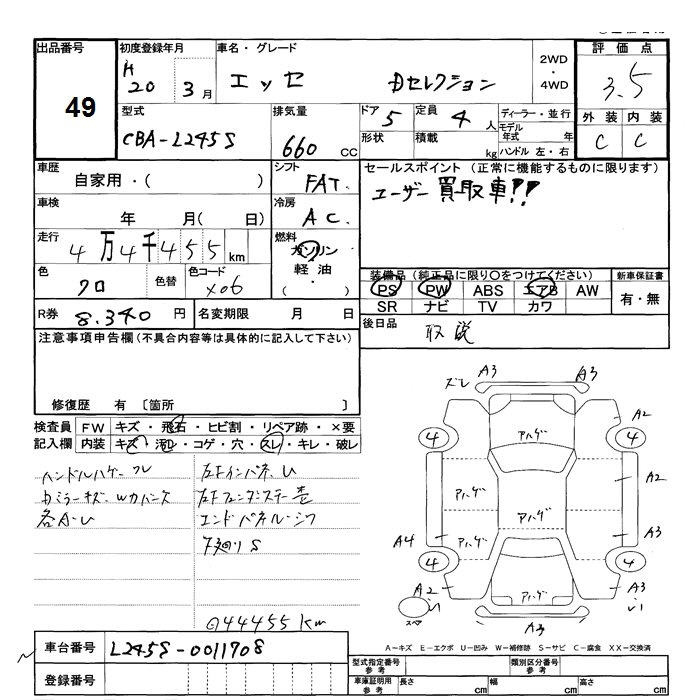 出品番号 49
初度登録年月 H20年 3月
車名・グレード エッセ Dセレクション
2WD・4WD
評価点 3.5
外装 C 内装 C
型式 CBA-L245S
排気量 660 CC
ドア 5
形状
定員 4 人
積載 kg
ディーラー・並行
モデル年式 年
ハンドル 左・右
車歴 自家用・( )
シフト FAT
セールスポイント (正常に機能するものに限ります)
ユーザー買取車!!
車検 年 月( 日)
冷房 AC
走行 4万4千455km
燃料 ガソリン
軽油
・( )
色 クロ 色替 色コード X06
装備品(純正品に限り○をつけてください)
PS PW ABS エアB AW
SR ナビ TV カワ
新車保証書
有・無
R券 8.340 円 名変期限 月 日
後日品 取説
注意事項申告欄(不具合内容等は具体的に記入して下さい)
修復歴 有 〔箇所 〕
検査員記入欄
FW キズ・飛石・ヒビ割・リペア跡・×要
内装 キズ・汚れ・コゲ・穴・スレ・キレ・破レ
ハンドルハゲ・スレ
Dミラーキズ・Wカバーキズ
各A・U
左Fインパネ U
左Fフェンダーステー歪
エンドパネル・シワ
下廻りS
◎44455km
ズレ A3 A3
A2
4 4
アハゲ
アハゲ アハゲ A2
アハゲ
A4 アハゲ A3
4 4
A2 アハゲ A3
スペア
A3
A−キズ E−エクボ U−凹み W−補修跡 S−サビ C−腐食 XX−交換済
車台番号 L245S-0011708
登録番号
型式指定番号 参考
類別区分番号 参考
車庫証明用 参考 長さ cm 幅 cm 高さ cm